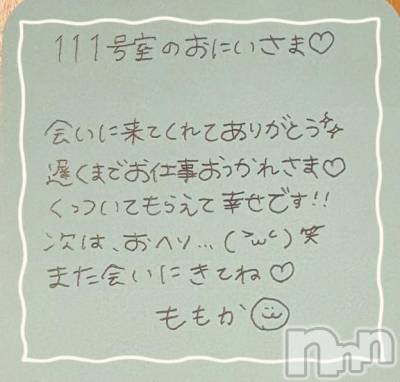 111号室のおにいさま♡
会いに来てくれてありがとう✨
遅くまでお仕事おつかれさま♡
くっついてもらえて幸せです!!
次は、おヘソ...(˃ω˂)笑
また会いにきてね♡
ももか☺
nnn